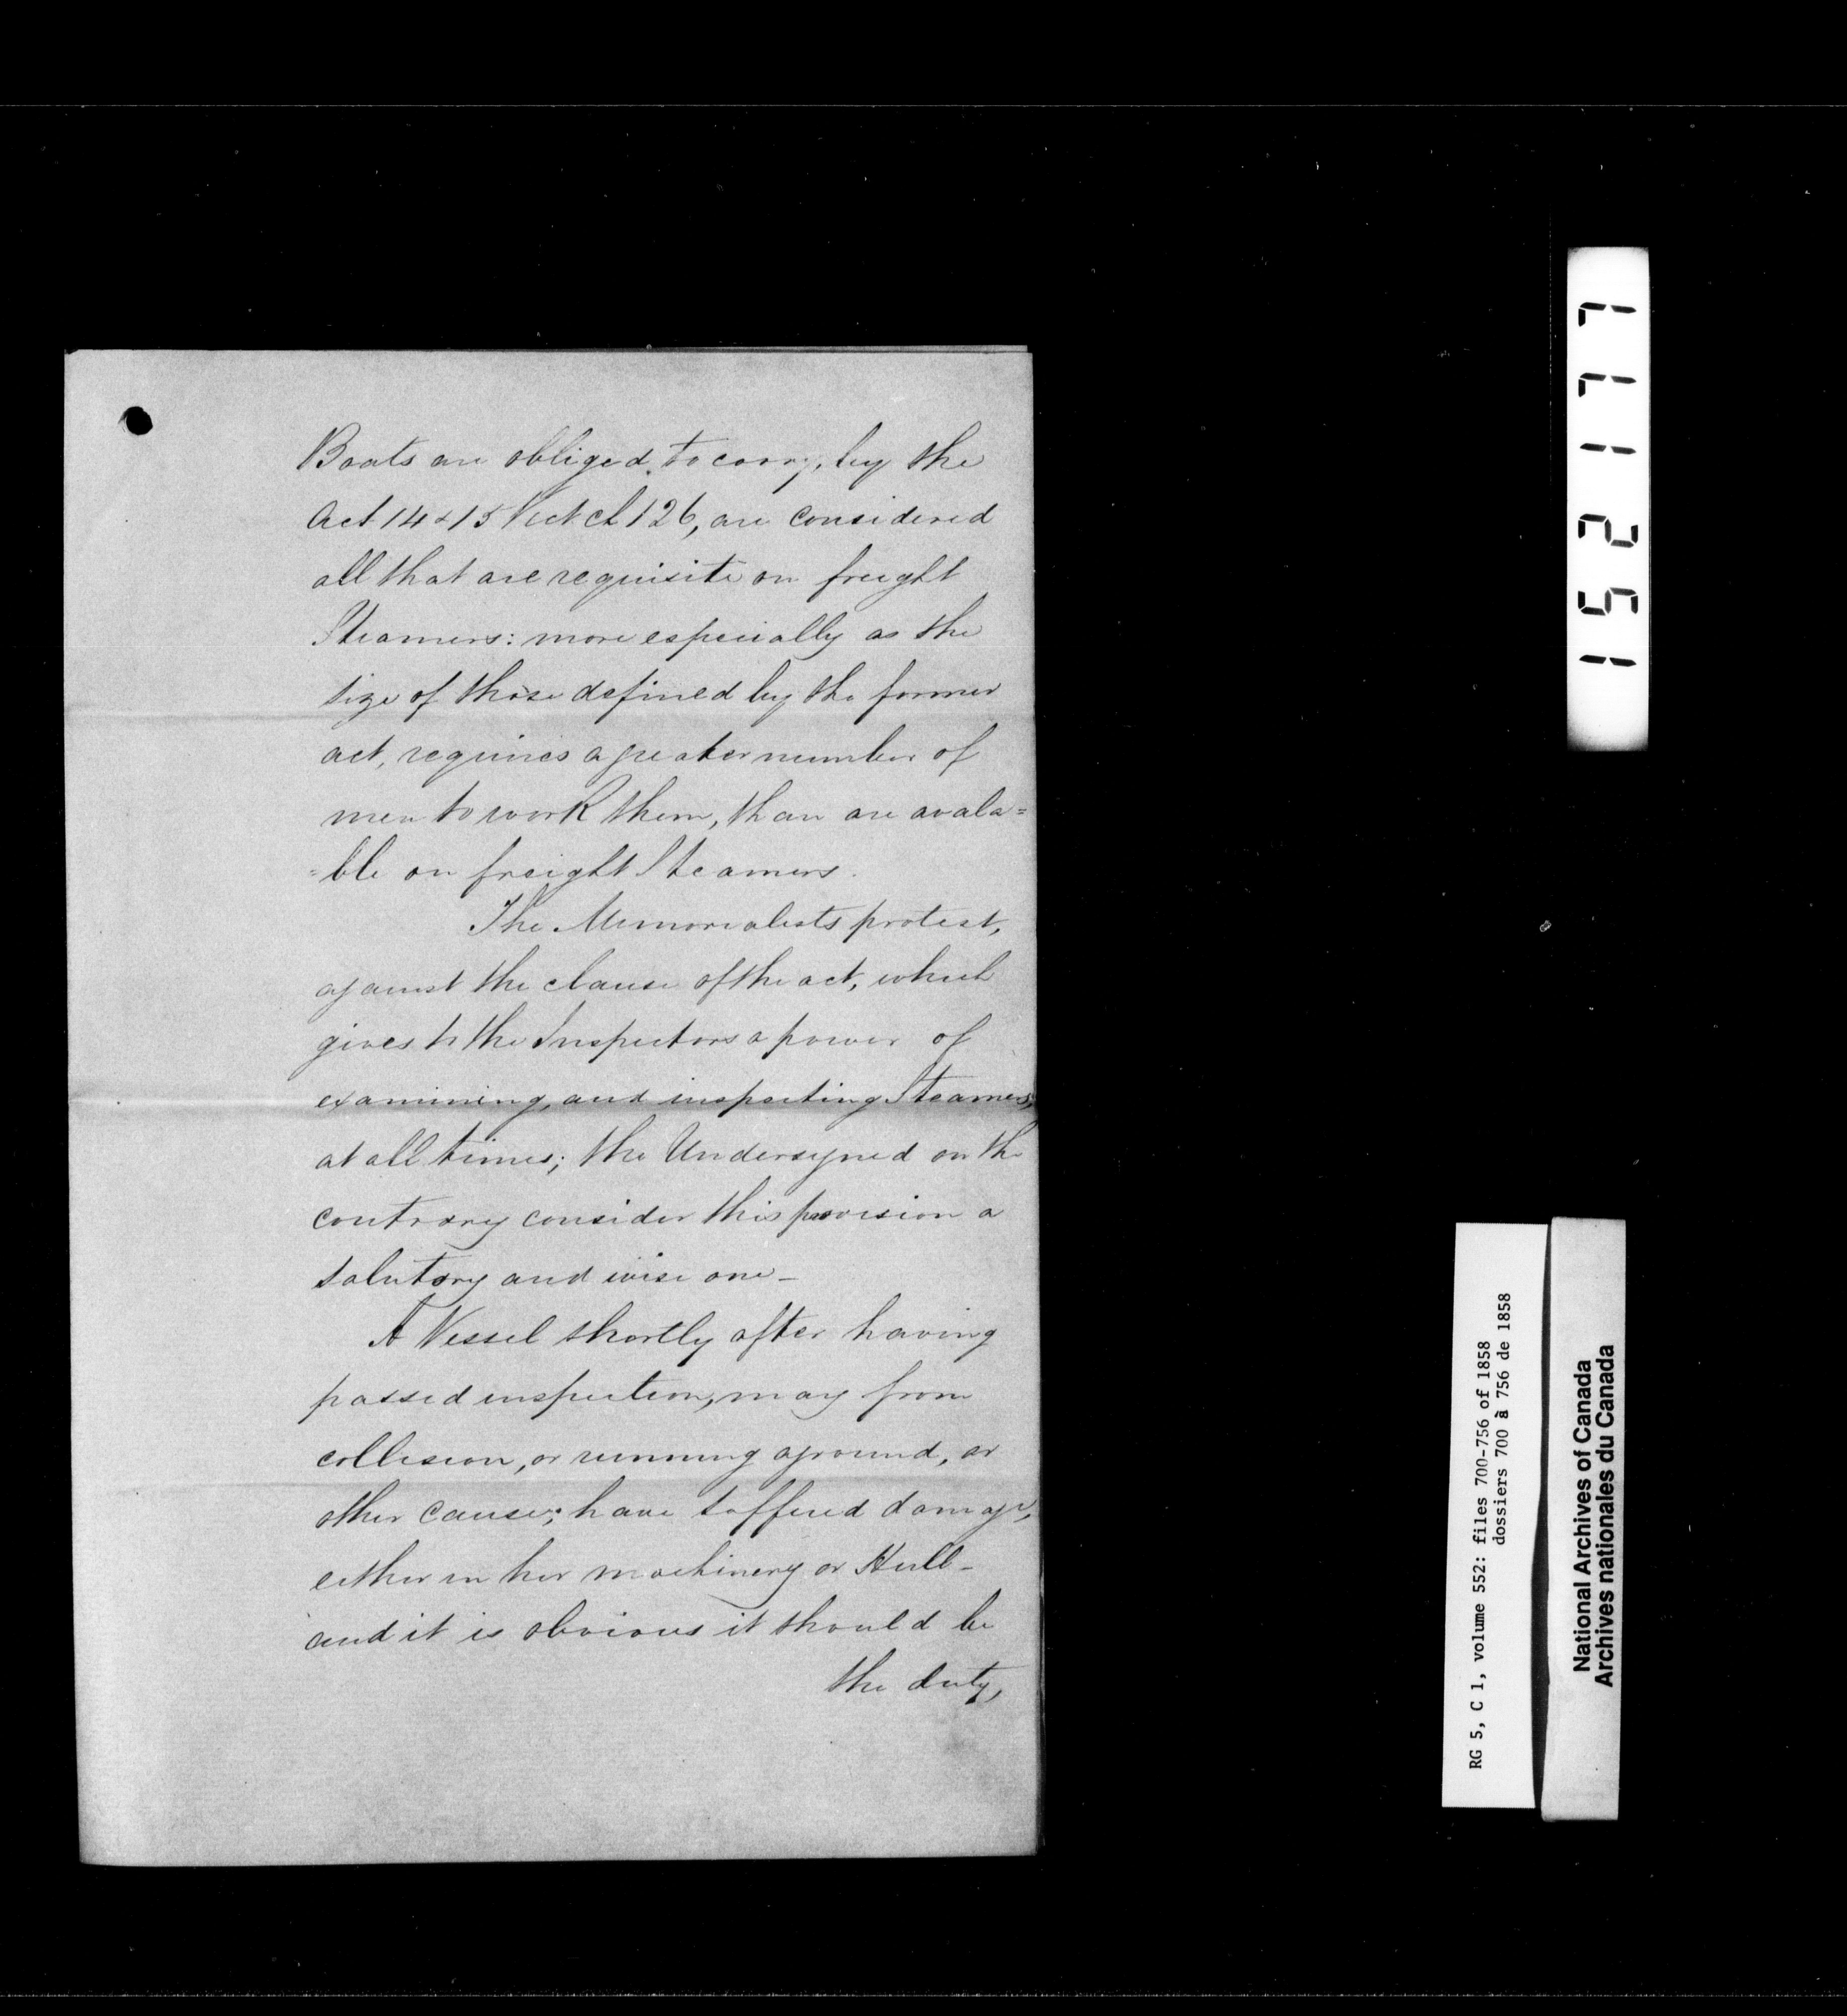 Boats are obliged, to carry, by the
Act 14 & 15 Vict ch 126, are considered
all that are requisite on freight
Steamers: more especially as the
size of those defined by the former
act, requires a greater number of
men to work them, than are avala=
=ble on freight Steamers.
The Memorialists protest,
against the clause of the act, which
gives to the Inspectors a power of
examining, and inspecting Steamers,
at all times; the Undersigned on the
contrary consider this provision a
salutory and wise one_
A Vessel shortly after having
passed inspection, may from
collision, or running aground, or
other cause; have suffered damage,
either in her machinery or Hull_
and it is obvious it should be
the duty,
152177
RG 5, C 1, volume 552: files 700-756 of 1858
dossiers 700 à 756 de 1858
National Archives of Canada
Archives nationales du Canada